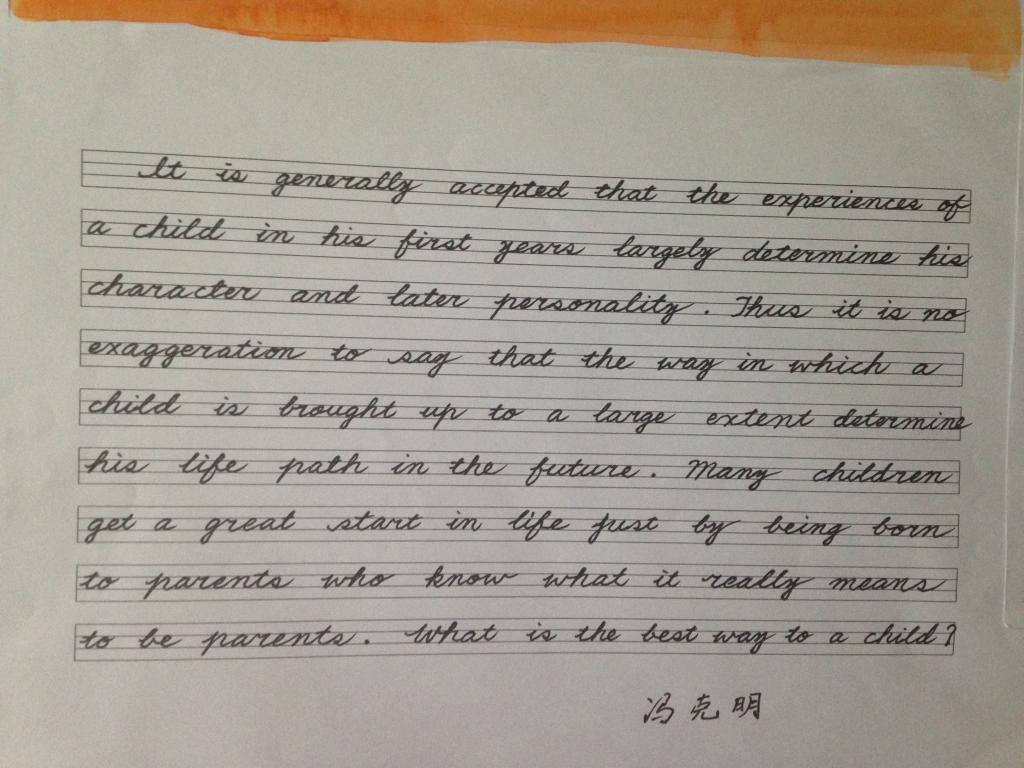 It is generally accepted that the experiences of
a child in his first years largely determine his
character and later personality. Thus it is no
exaggeration to say that the way in which a
child is brought up to a large extent determine
his life path in the future. Many children
get a great start in life just by being born
to parents who know what it really means
to be parents. What is the best way to a child?
冯克明